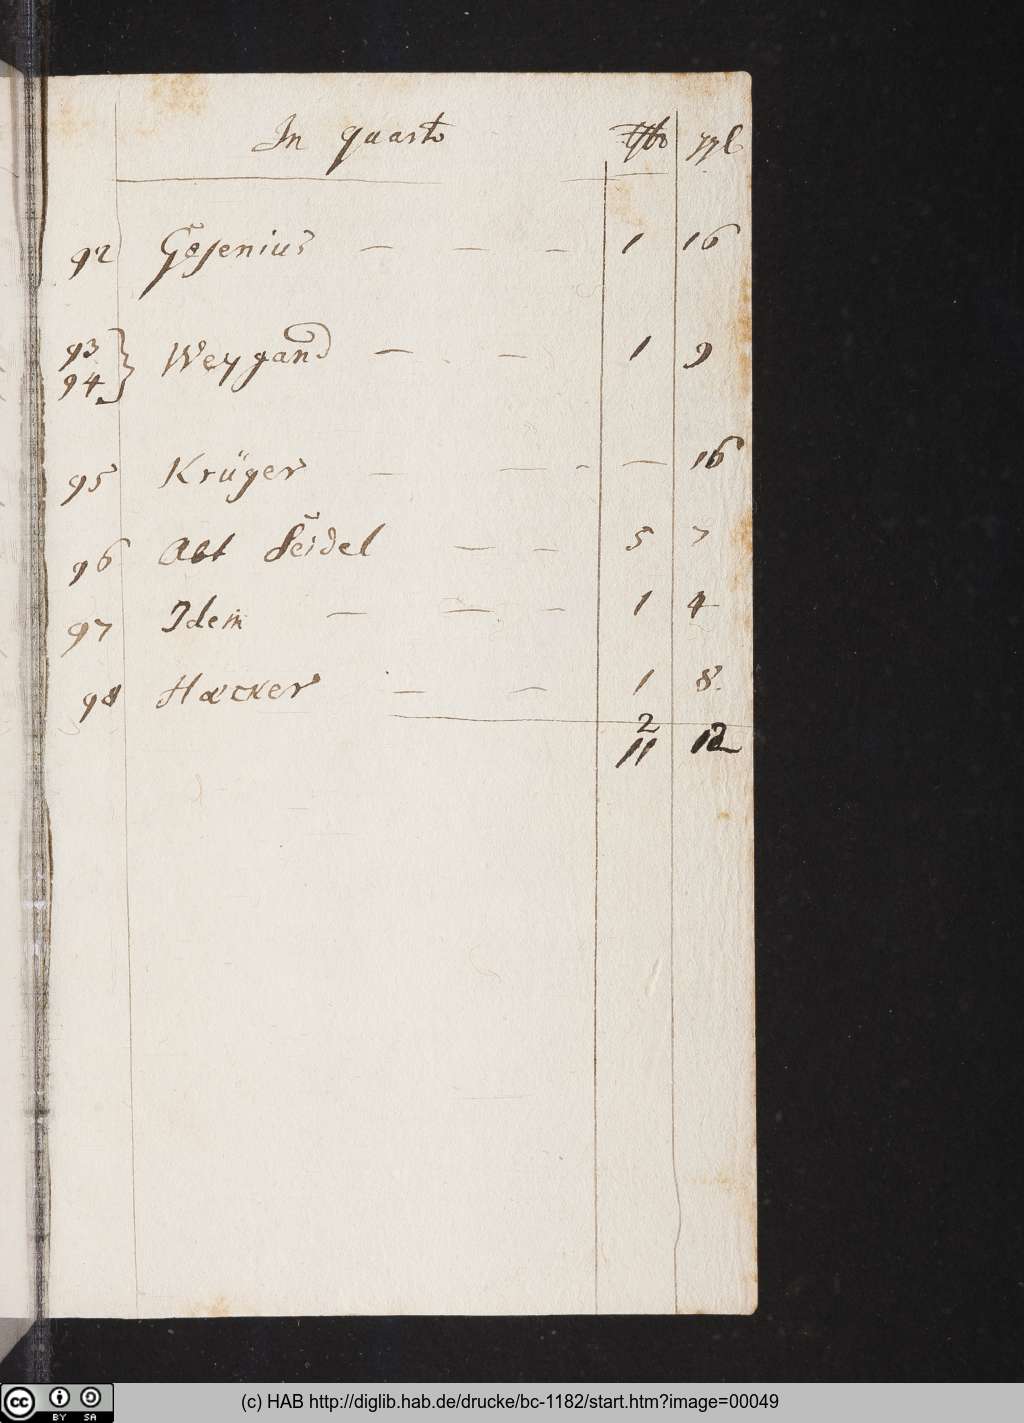 In quarto ggl
92 Gesenius — — — 1 16
93
94 } Weygand — — 1 9
95 Krüger — — - — 16
96 Abt Seidel — — 5 7
97 Idem — — — 1 4
98 Hacker — — 1 8.
2
11 12
(c) HAB http://diglib.hab.de/drucke/bc-1182/start.htm?image=00049
cc BY SA